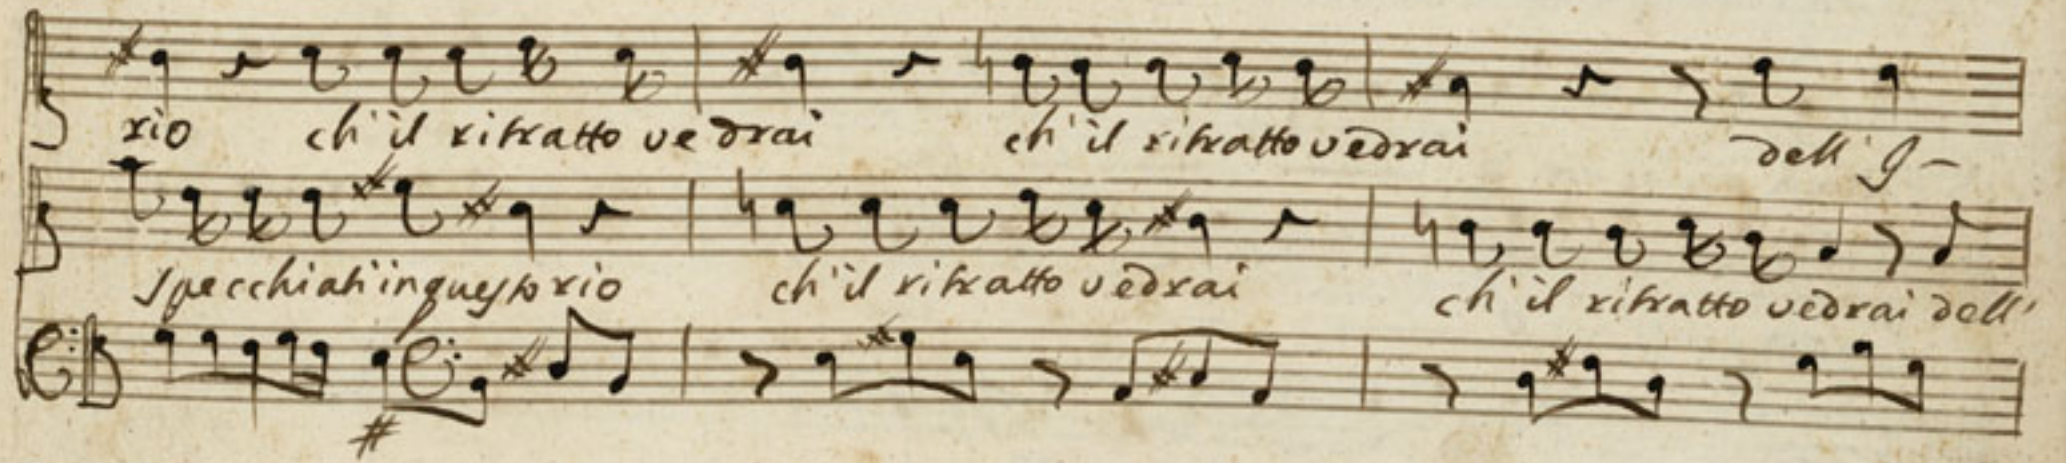 rio ch'il ritratto vedrai ch'il ritratto vedrai dell' I-
specchiati in questo rio ch'il ritratto vedrai ch'il ritratto vedrai dell'